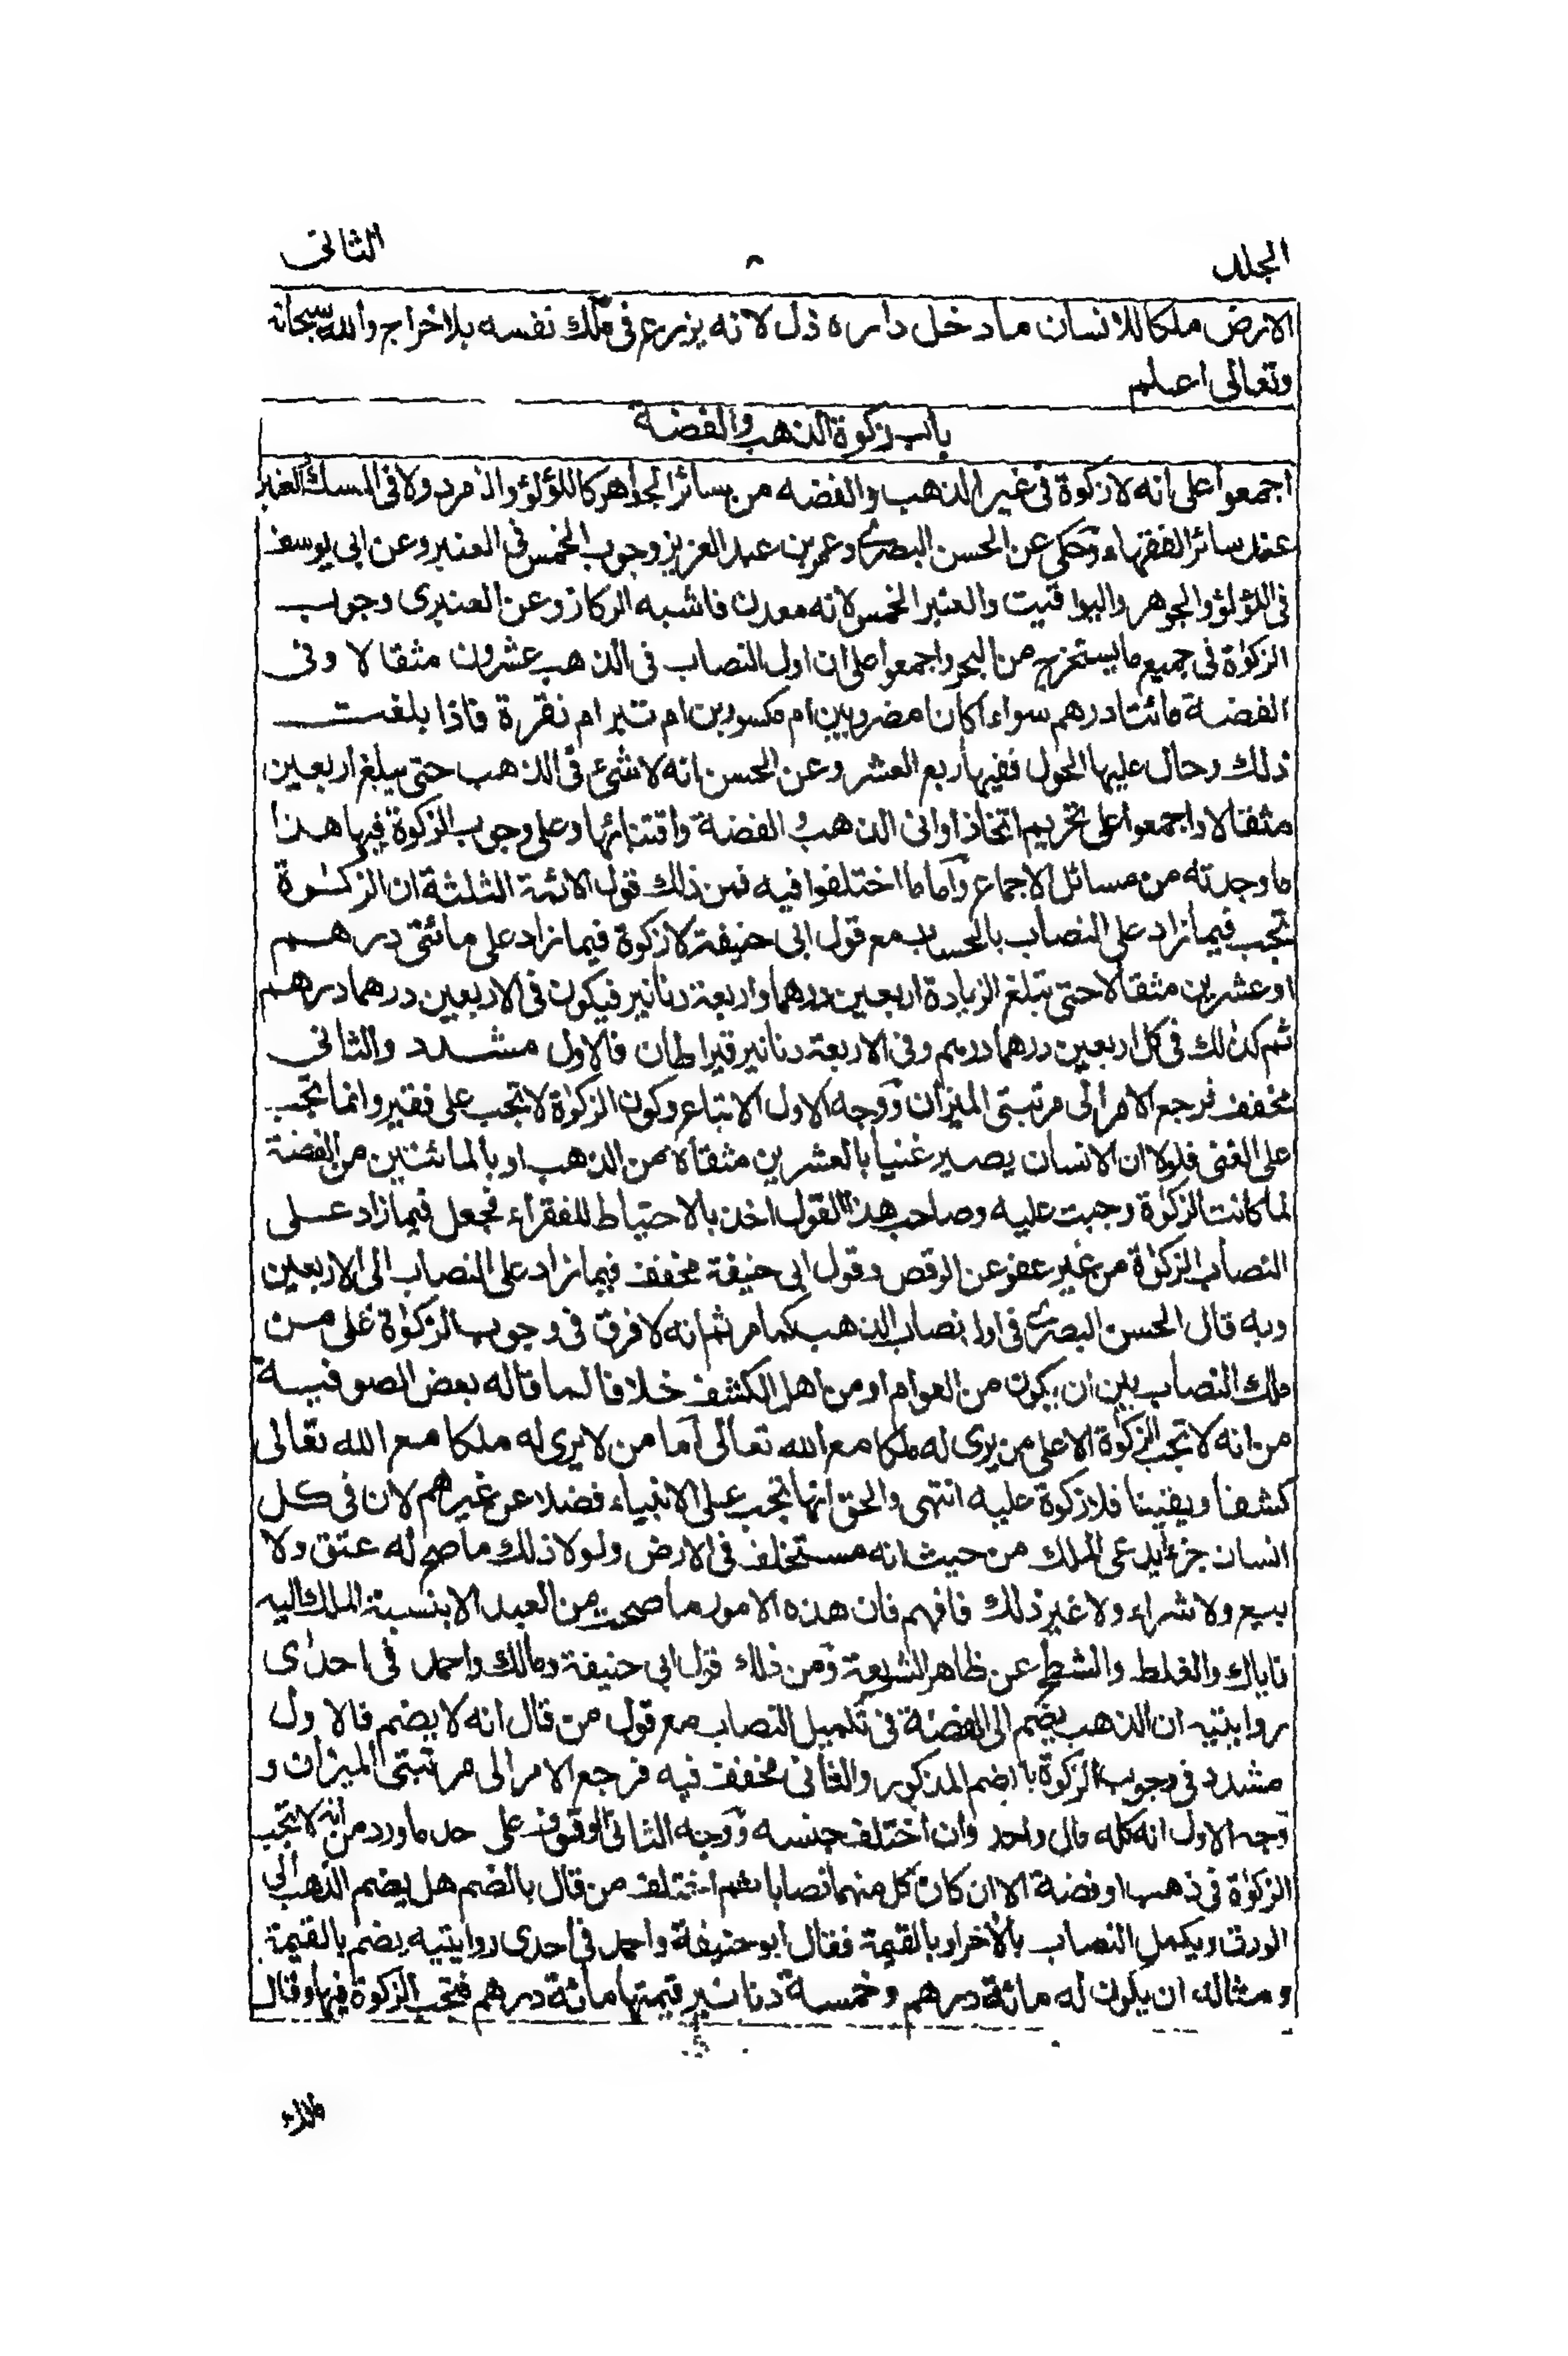 الجلد ۸ الثانى
الارض ملكا للانسان ما دخل داره ذل لانه يزرع فى ملك نفسه بلا خراج والله سبحانه
وتعالى اعلم
باب زكوة الذهب والفضة
اجمعوا على انه لا زكوة فى غير الذهب والفضه من سائر الجواهر كاللؤلؤ والزمرد ولا فى المسك والعنبر
عند سائر الفقهاء وحكى عن الحسن البصرى وعمر بن عبد العزيز وجوب الخمس فى العنبر وعن ابى يوسف
فى اللؤلؤ والجوهر واليواقيت والعنبر الخمس لانه معدن فاشبه الركاز وعن العنبرى وجوب
الزكوة فى جميع ما يستخرج من البحر واجمعوا على ان اول النصاب فى الذهب عشرون مثقالا وفى
الفضة مائتا درهم سواء اكانا مضروبين ام مكسورين ام تبر ام نقرة فاذا بلغت
ذلك وحال عليها الحول ففيها ربع العشر وعن الحسن انه لا شئ فى الذهب حتى يبلغ اربعين
مثقالا واجمعوا على تحريم اتخاذ اوانى الذهب والفضة واقتنائها وعلى وجوب الزكوة فيها هذا
ما وجدته من مسائل الاجماع واما ما اختلفوا فيه فمن ذلك قول الائمة الثلثة ان الزكوة
تجب فيما زاد على النصاب بالحساب مع قول ابى حنيفة لا زكوة فيما زاد على مائتى درهم
او عشرين مثقالا حتى تبلغ الزيادة اربعين درهما واربعة دنانير فيكون فى الاربعين درهما درهم
ثم كذلك فى كل اربعين درهما درهم وفى الاربعة دنانير قيراطان فالاول مشدد والثانى
مخفف فرجع الامر الى مرتبتى الميزان ووجه الاول الاتباع وكون الزكوة لا تجب على فقير وانما تجب
على الغنى فلولا ان الانسان يصير غنيا بالعشرين مثقالا من الذهب او بالمائتين من الفضة
لما كانت الزكوة وجبت عليه وصاحب هذا القول اخذ بالاحتياط للفقراء فجعل فيما زاد على
النصاب الزكوة من غير عفو عن الوقص وقول ابى حنيفة مخفف فيما زاد على النصاب الى الاربعين
وبه قال الحسن البصرى فى اول نصاب الذهب كما مر ثم انه لا فرق فى وجوب الزكوة على من
ملك النصاب بين ان يكون من العوام او من اهل الكشف خلافا لما قاله بعض الصوفية
من انه لا تجب الزكوة الا على من يرى له ملكا مع الله تعالى اما من لا يرى له ملكا مع الله تعالى
كشفا ويقينا فلا زكوة عليه انتهى والحق انها تجب على الانبياء فضلا عن غيرهم لان فى كل
انسان جزءا يدعى الملك من حيث انه مستخلف فى الارض ولولا ذلك ما صح له عتق ولا
بيع ولا شراء ولا غير ذلك فافهم فان هذه الامور ما صحت من العبد الا بنسبة الملك اليه
فاياك والغلط والشطح عن ظاهر الشريعة ومن ذلك قول ابى حنيفة ومالك واحمد فى احدى
روايتيه ان الذهب يضم الى الفضة فى تكميل النصاب مع قول من قال انه لا يضم فالاول
مشدد فى وجوب الزكوة بالضم المذكور والثانى مخفف فيه فرجع الامر الى مرتبتى الميزان و
وجه الاول انه كله مال واحد وان اختلف جنسه ووجه الثانى الوقوف على حد ما ورد من انه لا تجب
الزكوة فى ذهب او فضة الا ان كان كل منهما نصابا ثم اختلف من قال بالضم هل يضم الذهب الى
الورق ويكمل النصاب بالاخر او بالقيمة فقال ابو حنيفة واحمد فى احدى روايتيه يضم بالقيمة
ومثاله ان يكون له مائة درهم وخمسة دنانير قيمتها مائة درهم فتجب الزكوة فيها وقال